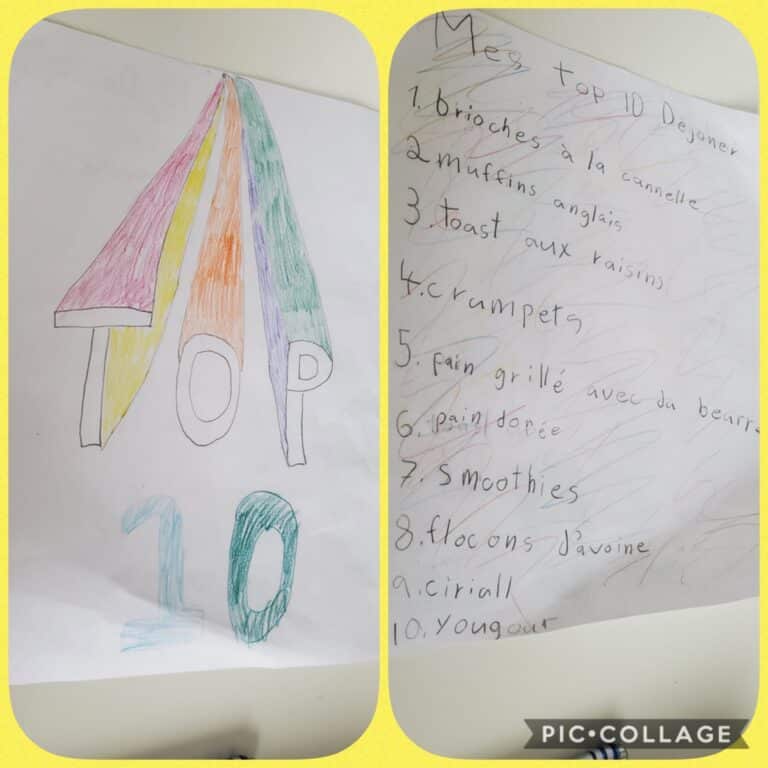 TOP
10
Mes top 10 Dejoner
1. brioches à la cannelle
2 muffins anglais
3. toast aux raisins
4. crumpets
5. pain grillé avec du beurre
6. pain dorée
7. smoothies
8. flocons d'avoine
9. ciriall
10. yougour
PIC•COLLAGE